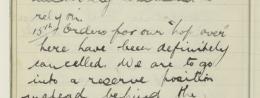 rely on.
15th Orders for our "hop over"
here have been definitely
cancelled. We are to go
into a reserve position
behind the